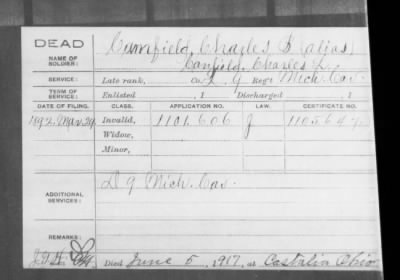 DEAD
NAME OF SOLDIER:
Cumfield, Charles B (alias)
Canfield, Charles L.
SERVICE: Late rank, Co. L, 9 Reg't Mich Cav.
TERM OF SERVICE: Enlisted , 1 Discharged , 1
DATE OF FILING. CLASS. APPLICATION NO. LAW. CERTIFICATE NO.
1892 Mar. 24 Invalid, 1101,606 J
Widow,
Minor,
ADDITIONAL SERVICES:
D 9 Mich. Cav.
REMARKS:
Died June 5, 1917, at Castalia Ohio